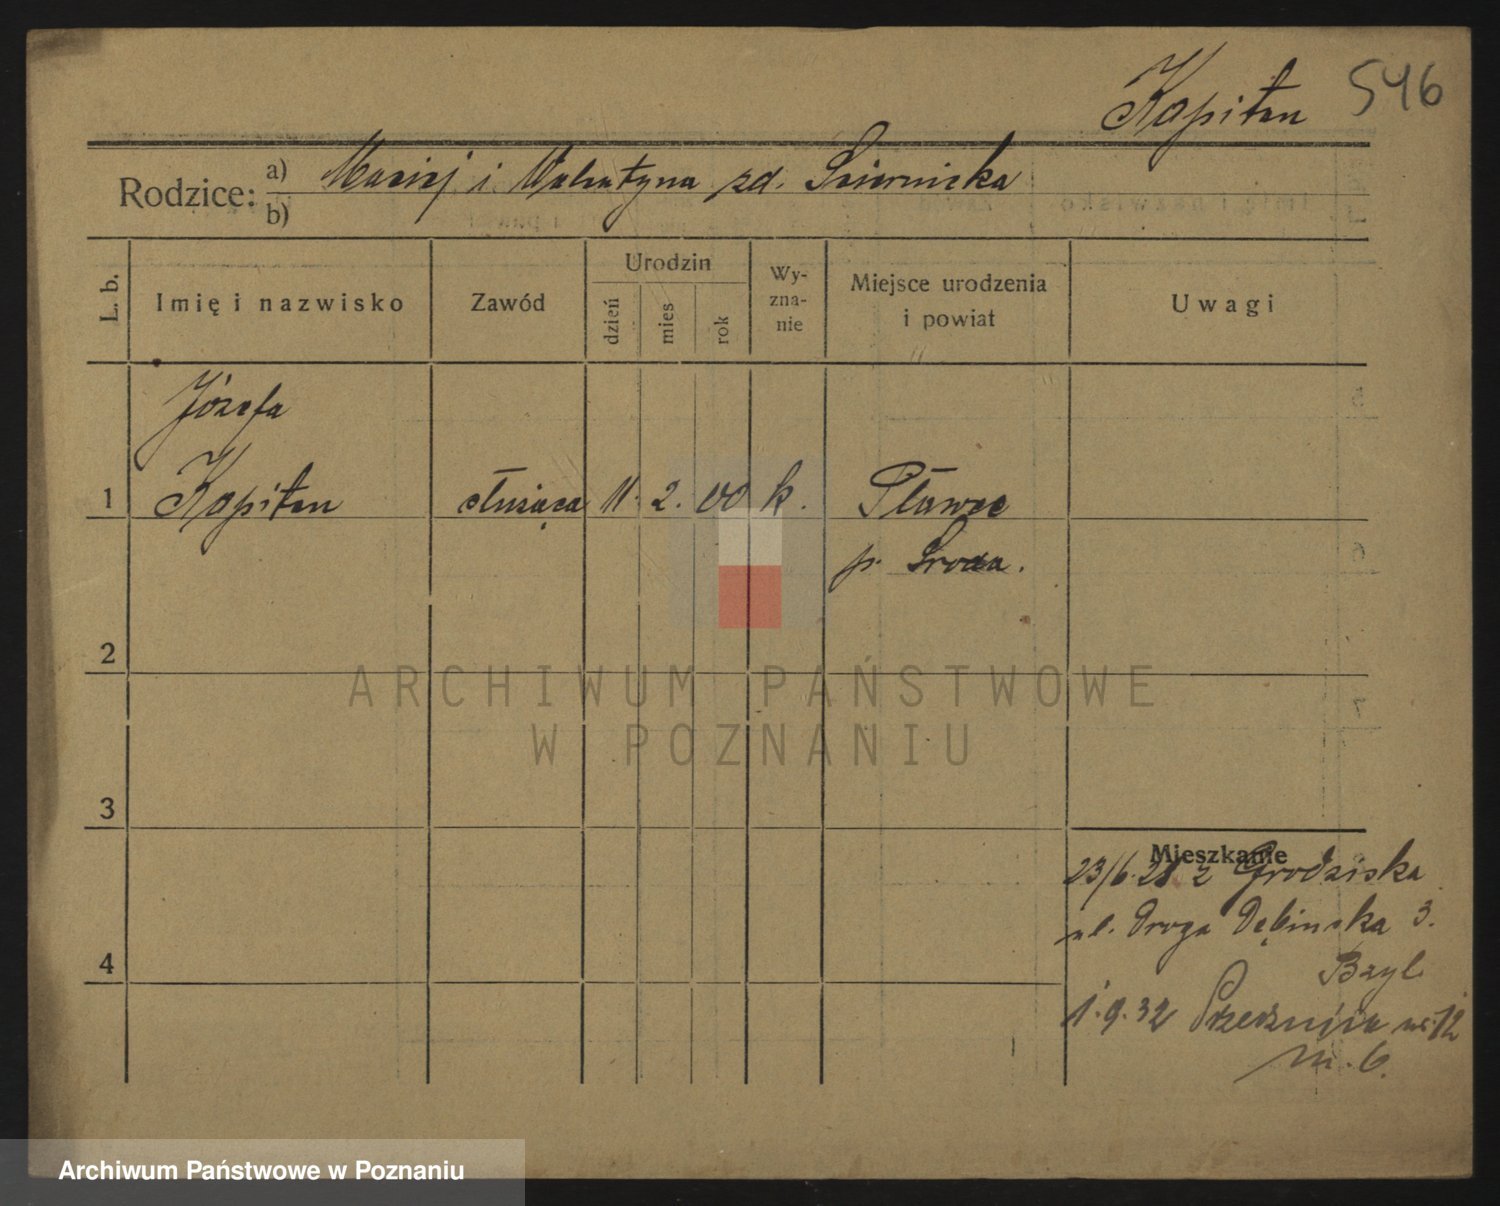 Kapitan
546
Rodzice:
a) Maciej i Walentyna zd. Sciernicka
b)
L. b.
Imię i nazwisko
Zawód
Urodzin
dzień
mies
rok
Wy-
zna-
nie
Miejsce urodzenia
i powiat
Uwagi
Józefa
1 Kapitan służąca 11. 2. 00 k. Pławce
p. Sroda.
2
3
4
Mieszkanie
23/6.21 z Grodziska
ul. Droga Dębinska 3.
Bzyl
1.9.32
nr. 12
m. 6.
ARCHIWUM PAŃSTWOWE
W POZNANIU
Archiwum Państwowe w Poznaniu